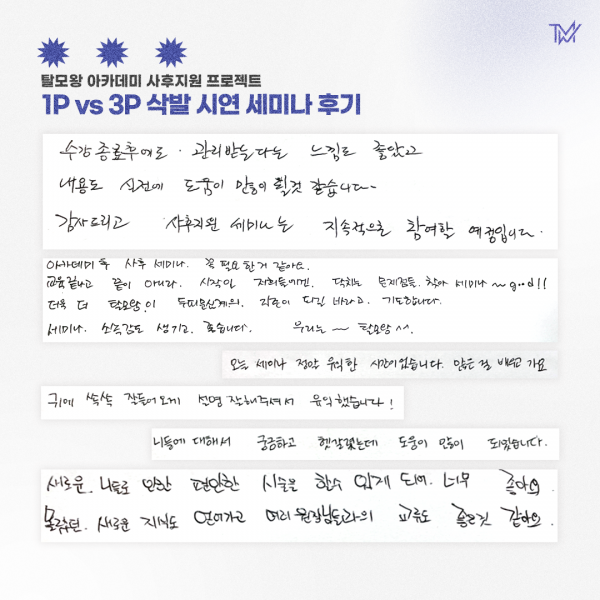 TM
탈모왕 아카데미 사후지원 프로젝트
1P vs 3P 삭발 시연 세미나 후기
수강종료후에도 관리받는다는 느낌도 좋았고
내용도 실전에 도움이 많이 될것 같습니다~
감사드리고 사후지원 세미나는 지속적으로 참여할 예정입니다.
아카데미 후 사후 세미나. 꼭 필요한거 같아요.
교육끝나고 끝이 아니라. 시작인 저희들에겐. 닥치는 문제점들. 찾아 세미나 ~ good!!
더욱 더 탈모왕이 두피문신계의. 각종이 되길 바라고. 기도합니다.
세미나. 소속감도 생기고. 좋습니다. 우리는 ~ 탈모왕 ^^.
오늘 세미나 정말 유익한 시간이었습니다. 많은 걸 배우고 가요
귀에 쏙쏙 잘들어오게 설명 잘해주셔서 유익했습니다!
니들에 대해서 궁금하고 헷갈렸는데 도움이 많이 되었습니다.
새로운. 니들로 인한 편안한 시술을 할수 있게 되어. 너무 좋아요.
모르던. 새로운 지식도 얻어가고 여러 원장님들과의 교류도 좋은것 같아요.